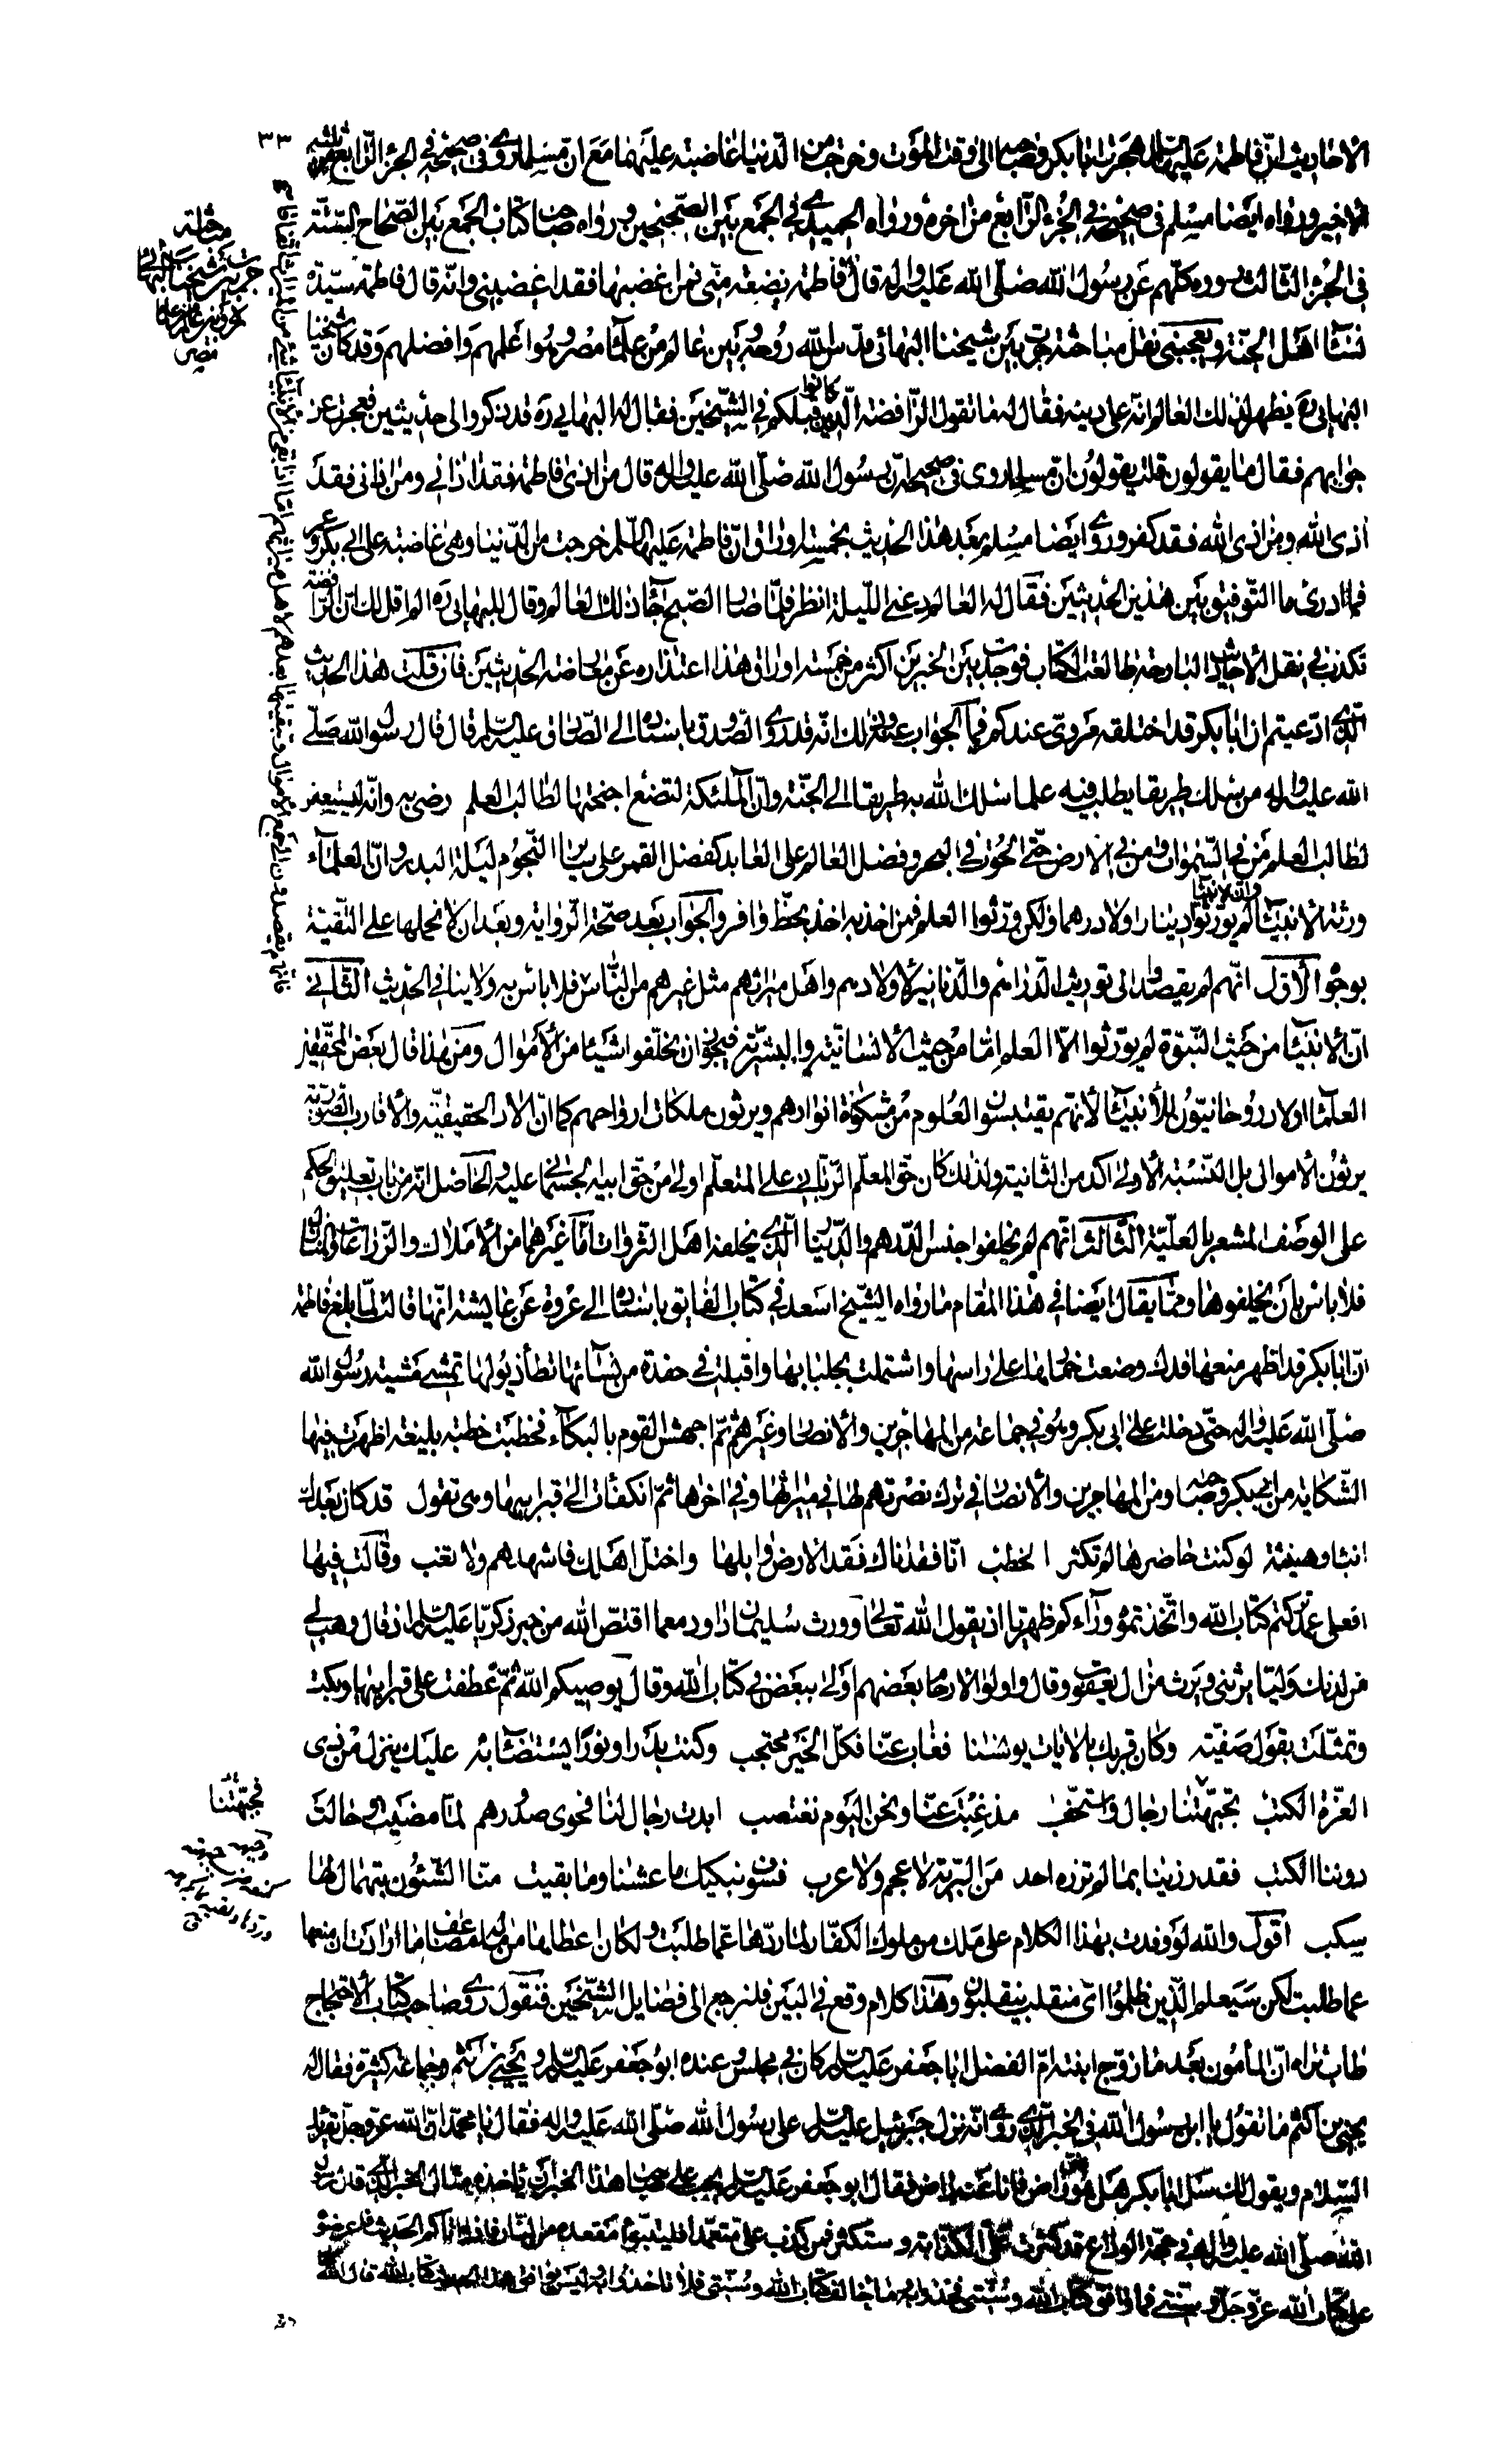 ٣٣
الاحاديث انّ فاطمة عليها السلم هجرت ابا بكر وصاحبه الى وقت الموت وخرجت من الدنيا غاضبة عليهما مع ان مسلما روى في صحيحه في الجزء الرابع
الاخير ورواه ايضا مسلم في صحيحه في الجزء الرابع من اخره ورواه الحميدي في الجمع بين الصحيحين ورواه صاحب كتاب الجمع بين الصحاح الستّة
في الجزء الثالث كلهم عن رسول الله صلّى الله عليه واله قال فاطمة بضعة منّي فمن اغضبها فقد اغضبني وانّه قال فاطمة سيّدة
نسآء اهل الجنّة ويعجبني نقل مباحثة جرت بين شيخنا البهائي قدس الله روحه وبين عالم من علمآء مصر وهو اعلمهم وافضلهم وقد كان شيخنا
البهائي ره يظهر لذلك العالم انّه على دينه فقال له ما تقول الرافضة الذين كانوا قبلكم في الشيخين فقال له البهائي ره قد ذكروا لي حديثين فعجزت عن
جوابهم فقال ما يقولون قلت يقولون انّ مسلما روى في صحيحه انّ رسول الله صلّى الله عليه واله قال من اذى فاطمة فقد اذاني ومن اذاني فقد
اذى الله ومن اذى الله فقد كفر وروى ايضا مسلم بعد هذا الحديث بخمسة اوراق انّ فاطمة عليها السلم خرجت من الدّنيا وهي غاضبة على ابي بكر وعمر
فما ادرى ما التوفيق بين هذين الحديثين فقال له العالم دعني الليلة انظر فلمّا صار الصبح جآء ذلك العالم وقال للبهائي ره الم اقل لك ان الرافضة
تكذب في نقل الاحاديث البارحة طالعت الكتاب فوجدت بين الخبرين اكثر من خمسة اوراق هذا اعتذاره عن معارضة الحديثين فان قلت هذا الحديث
الذي ادعيتم ان ابا بكر قد اختلقه مروى عندكم فما الجواب عنه وذلك انّه قد روى الصدوق باسناده الى الصادق عليه السلم قال قال رسول الله صلّى
الله عليه واله من سلك طريقا يطلب فيه علما سلك الله به طريقا الى الجنّة وانّ الملئكة لتضع اجنحتها لطالب العلم رضى به وانّه ليستغفر
لطالب العلم من في السموات ومن في الارض حتّى الحوت في البحر وفضل العالم على العابد كفضل القمر على ساير النجوم ليلة البدر وانّ العلمآء
ورثة الانبيآء وانّ الانبيآء لم يورّثوا دينارا ولا درهما ولكن ورّثوا العلم فمن اخذ به اخذ بحظّ وافر والجواب بعد صحّة الرواية وبعد ان لا نحملها على التقيّة
بوجوه الاوّل انّهم لم يقصدوا الى توريث الدراهم والدنانير لاولادهم واهل ميراثهم مثل غيرهم من النّاس فلا بأس به ولا ينافي الحديث الثّاني
انّ الانبيآء من حيث النبّوة لم يورّثوا الّا العلم امّا من حيث الانسانيّة والبشريّة فيجوز ان يخلّفوا شيئا من الاموال ومن هذا قال بعض المحققين
العلمآء اولاد روحانيّون للانبيآء لانّهم يقتبسون العلوم من مشكوة انوارهم ويرثون ملكات ارواحهم كما انّ الاولاد الحقيقيّة والاقارب الصورية
يرثون الاموال بل النّسبة الاولى اكد من الثانية ولذلك كان حق المعلّم الربّاني على المتعلّم اولى من حق ابيه الجسماني عليه والحاصل انّه من باب تعليق الحكم
على الوصف المشعر بالعلّيّة الثالث انّهم لم يخلفوا جنس الدرهم والدينار الذي يخلفه اهل الثروات امّا غيرهما من الاملاك والزراعات
فلا بأس بان يخلفوها وممّا يقال ايضا في هذا المقام ما رواه الشيخ اسعد في كتاب الفايق باسناده الى عروة عن عايشة انّها قالت لمّا بلغ فاطمة
انّ ابا بكر قد اظهر منعها فدك وضعت خمارها على راسها واشتملت بجلبابها واقبلت في حفدة من نسآئها تطأ ذيولها تمشي مشية رسول الله
صلّى الله عليه واله حتّى دخلت على ابي بكر وهو في جماعة من المهاجرين والانصار وغيرهم ثمّ اجهش القوم بالبكآء فخطبت خطبة بليغة اظهرت فيها
الشّكاية من ابي بكر وصاحبه ومن المهاجرين والانصار في ترك نصرتهم لها في ميراثها وفي اخرها ثمّ انكفأت الى قبر ابيها وهي تقول قد كان بعدك
انباء وهينمة لو كنت حاضرها لم تكثر الخطب انّا فقدناك فقد الارض وابلها واختلّ اهلك فاشهدهم ولا تغب وقالت فيها
افعلى عمد تركتم كتاب الله واتّخذتموه ورآءكم ظهريّا اذ يقول الله تعالى وورث سليمان داود مع ما اقتصّ الله من خبر زكريّا عليه السلم اذ قال وهب لي
من لدنك وليّا يرثني ويرث من ال يعقوب وقال واولوا الارحام بعضهم اولى ببعض في كتاب الله وقال يوصيكم الله ثمّ عطفت على قبر ابيها وبكت
وتمثّلت بقول صفيّة وكان قربك بالايات يونسنا فغاب عنّا فكلّ الخير محتجب وكنت بدرا ونورا يستضآء به عليك ينزل من ذي
العزّة الكتب تجهّمتنا رجال واستخفّ مذ غبت عنّا ونحن اليوم نغتصب ابدت رجال لنا فحوى صدورهم لمّا مضيت وحالت
دوننا الكثب فقد رزينا بما لم يرزه احد من البريّة لا عجم ولا عرب فسوف نبكيك ما عشنا وما بقيت منّا الشئون بتهمال لها
سكب اقول والله لو وفدت بهذا الكلام على ملك من ملوك الكفّار لما ردّها عمّا طلبت ولكان اعطاها من ماله اضعاف ما ارادت ان منعها
عما طلبت لكن سيعلم الّذين ظلموا اىّ منقلب ينقلبون وهذا كلام وقع في البين فلنرجع الى فضايل الشيخين فنقول روى صاحب كتاب الاحتجاج
طاب ثراه انّ المأمون بعد ما زوّج ابنته امّ الفضل ابا جعفر عليه السلم كان في مجلس وعنده ابو جعفر عليه السلم ويحيى بن اكثم وجماعة كثيرة فقال له
يحيى بن اكثم ما تقول يا ابن رسول الله في الخبر الذي روى انّه نزل جبرئيل عليه السلم على رسول الله صلّى الله عليه واله فقال يا محمّد انّ الله عزّ وجلّ يقرئك
السلام ويقول لك سل ابا بكر هل هو عنى راض فانا عنه راض فقال ابو جعفر عليه السلم يجب على صاحب هذا الخبر ان ياخذ مثال الخبر الذي قال رسول
الله صلّى الله عليه واله في حجّة الوداع قد كثرت علىّ الكذّابة وستكثر فمن كذب علىّ متعمّدا فليتبوّء مقعده من النار فاذا اتاكم الحديث فاعرضوه
على كتاب الله عزّ وجلّ وسنّتي فما وافق كتاب الله وسنّتي فخذوا به وما خالف كتاب الله وسنّتي فلا تاخذوا به وليس يوافق هذا الخبر كتاب الله قال الله